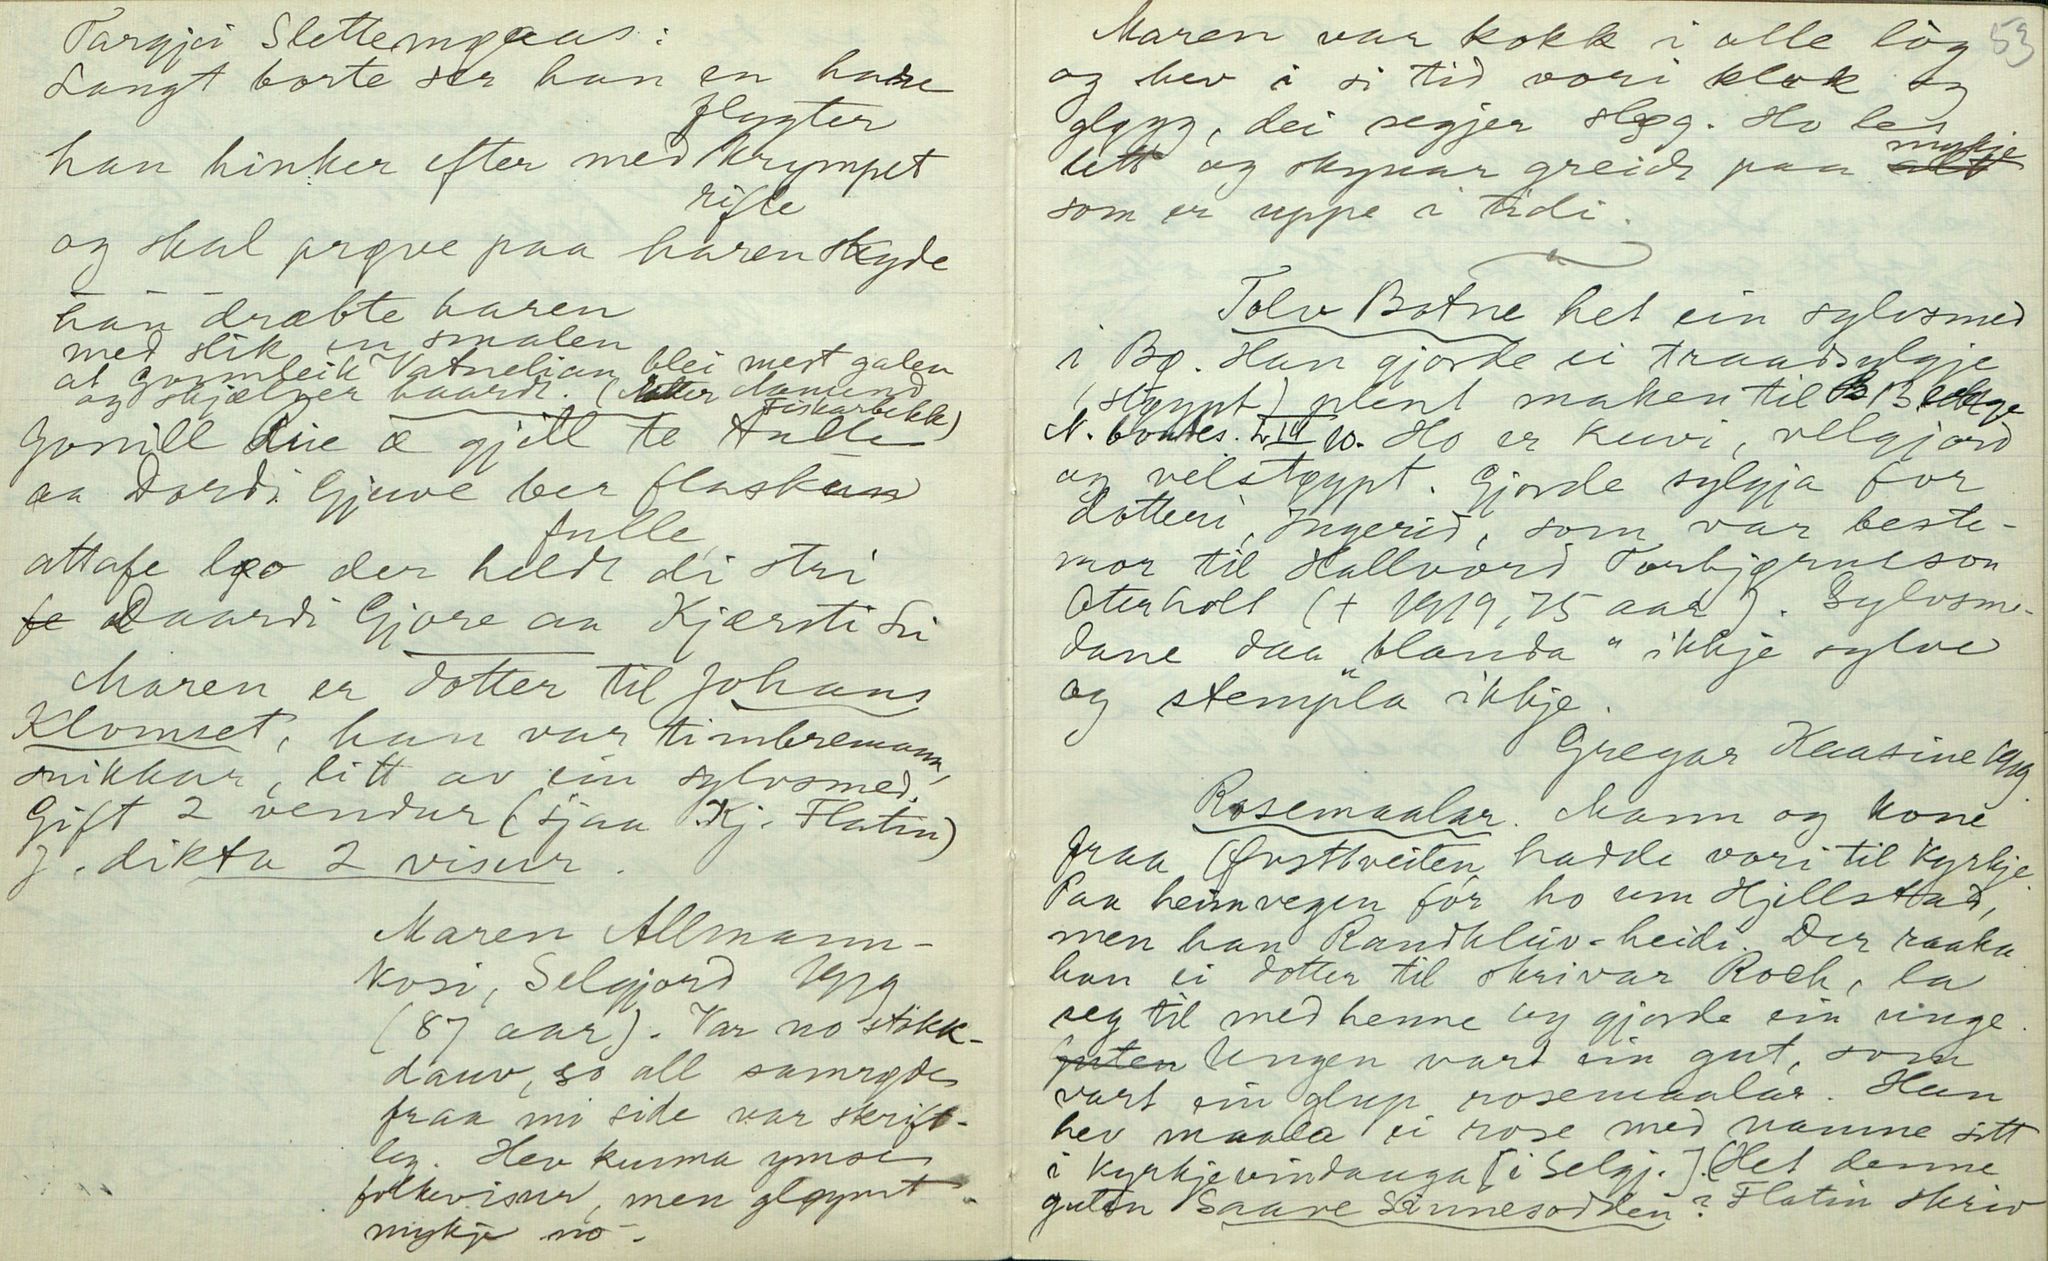 Targjei Slettemgaas:
Langt borte ser han en hare
flygter
han hinker efter med krympet
rifle
og skal prøve paa haren skyde
han dræbte haren
med slik en smalen
at Gunnleik Vatnelian blei mest galen
og skjælver haardt. (Etter Aamund
Fiskarbekk)
Gonill Lie æ gjill te tulle
aa Dordi Gjuve ber flaskun
fulle
attafe løo der heldt di stri
fe Daardi Gjore aa Kjærsti Li
Maren er dotter til Johans
Klomset, han var timbremann,
snikkar, litt av ein sylvsmed.
Gift 2 vendur (sjaa Kj. Flatin)
J. dikta 2 visur.
Maren Allmann-
kosi, Selgjord 1919
(87 aar). Var no stikk-
dauv, so all samrøde
fraa mi side var skrift-
leg. Hev kunna ymse
folkevisur, men gløymt
mykje no.
53
Maren var kokk i alle lòg
og hev i si tid vori klok og
gløgg, dei segjer sløg. Ho les
mykje
lett og skynar greidt paa alt
som er uppe i tidi.
Tolv Botne het ein sylvsmed
i Bø. Han gjorde ei traadsylgje
(støypt) plent maken til B Bedge
N. bondes. L III 10. Ho er kuvi, velgjord
og velstøypt. Gjorde sylgja for
dotteri, Ingerid, som var beste-
mor til Hallvord Torbjørnson
Oterholt († 1919, 75 aar). Sylvsme-
dane daa "blanda" ikkje sylve
og stempla ikkje.
Gregar Kaasine 1919.
Rosemaalar. Mann og kone
fraa Øvstkveiten hadde vori til kyrkje.
Paa heimvegen fór ho um Hjillstad,
men han Randkluv-heidi. Der raaka
han ei dotter til skrivar Roch, la
seg til med henne og gjorde ein unge.
guten Ungen vart ein gut, som
vart ein glup rosemaalar. Han
hev maala ei rose med namne sitt
i kyrkjevindauga [i Selgj.]. (Het denne
guten Saave Sinnesodden? Flatin skriv